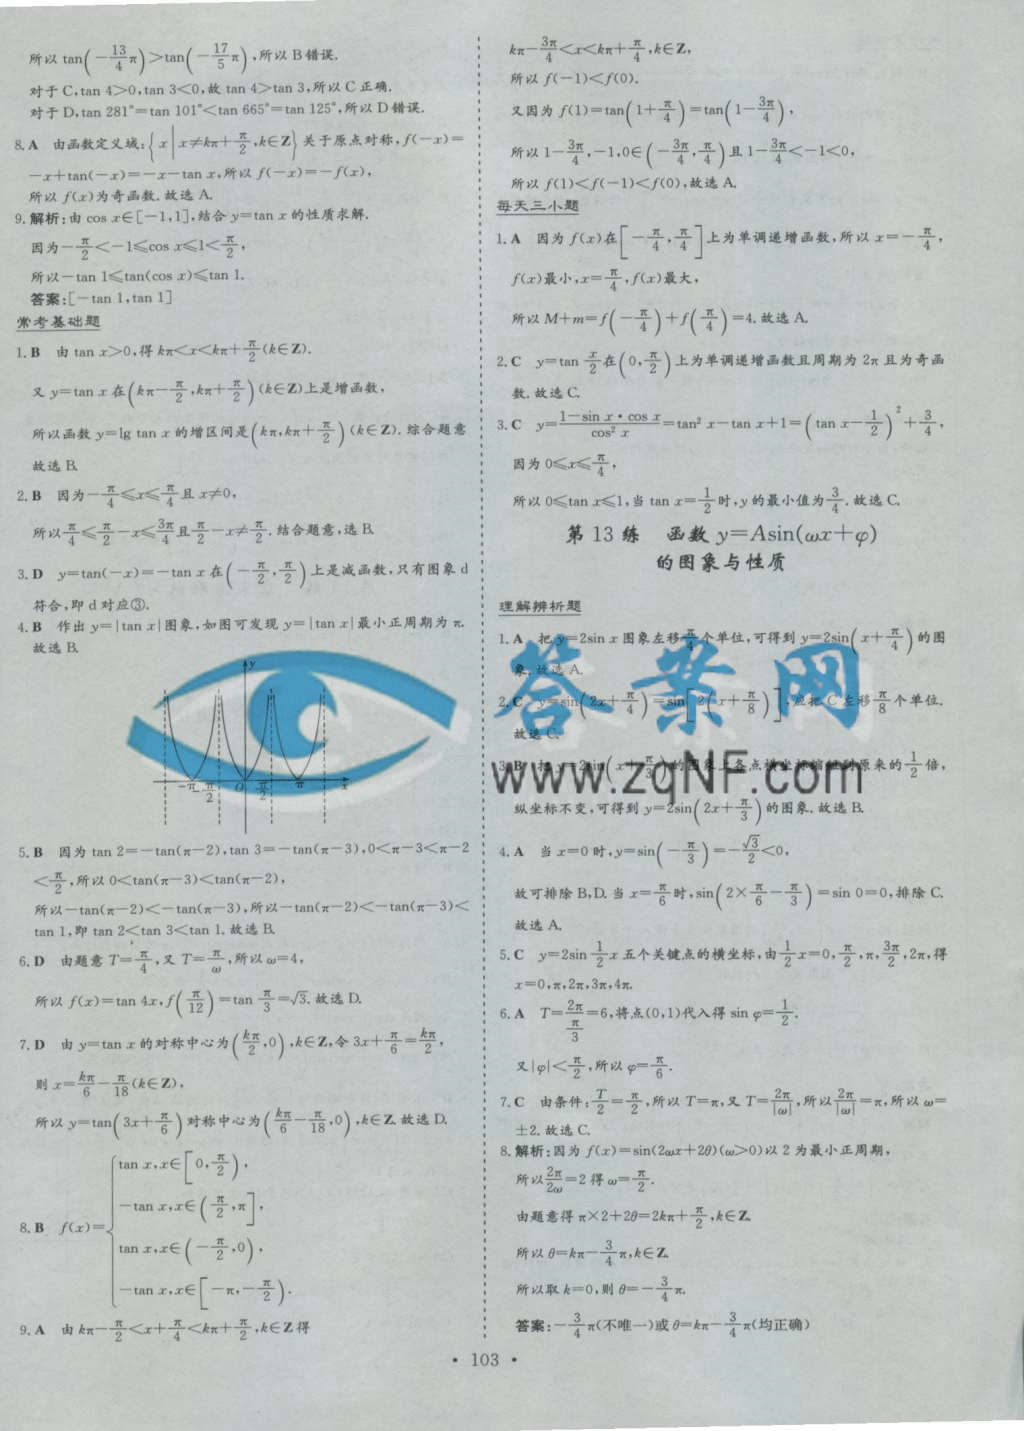 所以 tan(－13/4π)＞tan(－17/5π),所以 B 错误.
对于 C,tan 4＞0,tan 3＜0,故 tan 4＞tan 3,所以 C 正确.
对于 D,tan 281°＝tan 101°＜tan 665°＝tan 125°,所以 D 错误.
8. A 由函数定义域:{x|x≠kπ＋π/2,k∈Z}关于原点对称,f(－x)＝
－x＋tan(－x)＝－x－tan x,所以 f(－x)＝－f(x),
所以 f(x)为奇函数.故选 A.
9. 解析:由 cos x∈[－1,1],结合 y＝tan x 的性质求解.
因为－π/2＜－1≤cos x≤1＜π/2,
所以－tan 1≤tan(cos x)≤tan 1.
答案:[－tan 1,tan 1]
常考基础题
1. B 由 tan x＞0,得 kπ＜x＜kπ＋π/2(k∈Z).
又 y＝tan x 在(kπ－π/2,kπ＋π/2)(k∈Z)上是增函数,
所以函数 y＝lg tan x 的增区间是(kπ,kπ＋π/2)(k∈Z).综合题意
故选 B.
2. B 因为－π/4≤x≤π/4且 x≠0,
所以π/4≤π/2－x≤3π/4且π/2－x≠π/2.结合题意,选 B.
3. D y＝tan(－x)＝－tan x 在(－π/2,π/2)上是减函数,只有图象 d
符合,即 d 对应③.
4. B 作出 y＝|tan x|图象,如图可发现 y＝|tan x|最小正周期为 π.
故选 B.
y
－π －π/2 O π/2 π x
5. B 因为 tan 2＝－tan(π－2),tan 3＝－tan(π－3),0＜π－3＜π－2
＜π/2,所以 0＜tan(π－3)＜tan(π－2),
所以－tan(π－2)＜－tan(π－3),所以－tan(π－2)＜－tan(π－3)＜
tan 1,即 tan 2＜tan 3＜tan 1.故选 B.
6. D 由题意 T＝π/4,又 T＝π/ω,所以 ω＝4,
所以 f(x)＝tan 4x,f(π/12)＝tan π/3＝√3.故选 D.
7. D 由 y＝tan x 的对称中心为(kπ/2,0),k∈Z,令 3x＋π/6＝kπ/2,
则 x＝kπ/6－π/18(k∈Z),
所以 y＝tan(3x＋π/6)对称中心为(kπ/6－π/18,0),k∈Z.故选 D.
8. B f(x)＝{
tan x,x∈[0,π/2),
－tan x,x∈(π/2,π],
tan x,x∈(－π/2,0),
－tan x,x∈[－π,－π/2).
9. A 由 kπ－π/2＜x＋π/4＜kπ＋π/2,k∈Z得
kπ－3π/4＜x＜kπ＋π/4,k∈Z,
所以 f(－1)＜f(0).
又因为 f(1)＝tan(1＋π/4)＝tan(1－3π/4),
所以 1－3π/4,－1,0∈(－3π/4,π/4)且 1－3π/4＜－1＜0,
所以 f(1)＜f(－1)＜f(0),故选 A.
每天三小题
1. A 因为 f(x)在[－π/4,π/4]上为单调递增函数,所以 x＝－π/4,
f(x)最小,x＝π/4,f(x)最大,
所以 M＋m＝f(－π/4)＋f(π/4)＝4.故选 A.
2. C y＝tan x/2在(0,π/2)上为单调递增函数且周期为 2π 且为奇函
数.故选 C.
3. C y＝(1－sin x·cos x)/cos² x＝tan² x－tan x＋1＝(tan x－1/2)²＋3/4,
因为 0≤x≤π/4,
所以 0≤tan x≤1,当 tan x＝1/2时,y 的最小值为3/4.故选 C.
第 13 练 函数 y＝Asin(ωx＋φ)
的图象与性质
理解辨析题
1. A 把 y＝2sin x 图象左移π/4个单位,可得到 y＝2sin(x＋π/4)的图
象.故选 A.
2. C y＝sin(2x＋π/4)＝sin[2(x＋π/8)],应把 C 左移π/8个单位.
故选 C.
3. B 把 y＝2sin(x＋π/3)的图象上各点横坐标缩短到原来的1/2倍,
纵坐标不变,可得到 y＝2sin(2x＋π/3)的图象.故选 B.
4. A 当 x＝0 时,y＝sin(－π/3)＝－√3/2＜0,
故可排除 B,D.当 x＝π/6时,sin(2×π/6－π/3)＝sin 0＝0,排除 C.
故选 A.
5. C y＝2sin 1/2x 五个关键点的横坐标,由1/2x＝0,π/2,π,3π/2,2π,得
x＝0,π,2π,3π,4π.
6. A T＝2π/(π/3)＝6,将点(0,1)代入得 sin φ＝1/2.
又|φ|＜π/2,所以 φ＝π/6.
7. C 由条件:T/2＝π/2,所以 T＝π,又 T＝2π/|ω|,所以2π/|ω|＝π,所以 ω＝
±2.故选 C.
8. 解析:因为 f(x)＝sin(2ωx＋2θ)(ω＞0)以 2 为最小正周期,
所以2π/2ω＝2 得 ω＝π/2.
由题意得 π×2＋2θ＝2kπ＋π/2,k∈Z.
所以 θ＝kπ－3/4π,k∈Z.
所以取 k＝0,则 θ＝－3/4π.
答案:－3/4π(不唯一)或 θ＝kπ－3/4π(均正确)
答案网
www.zqNF.com
• 103 •